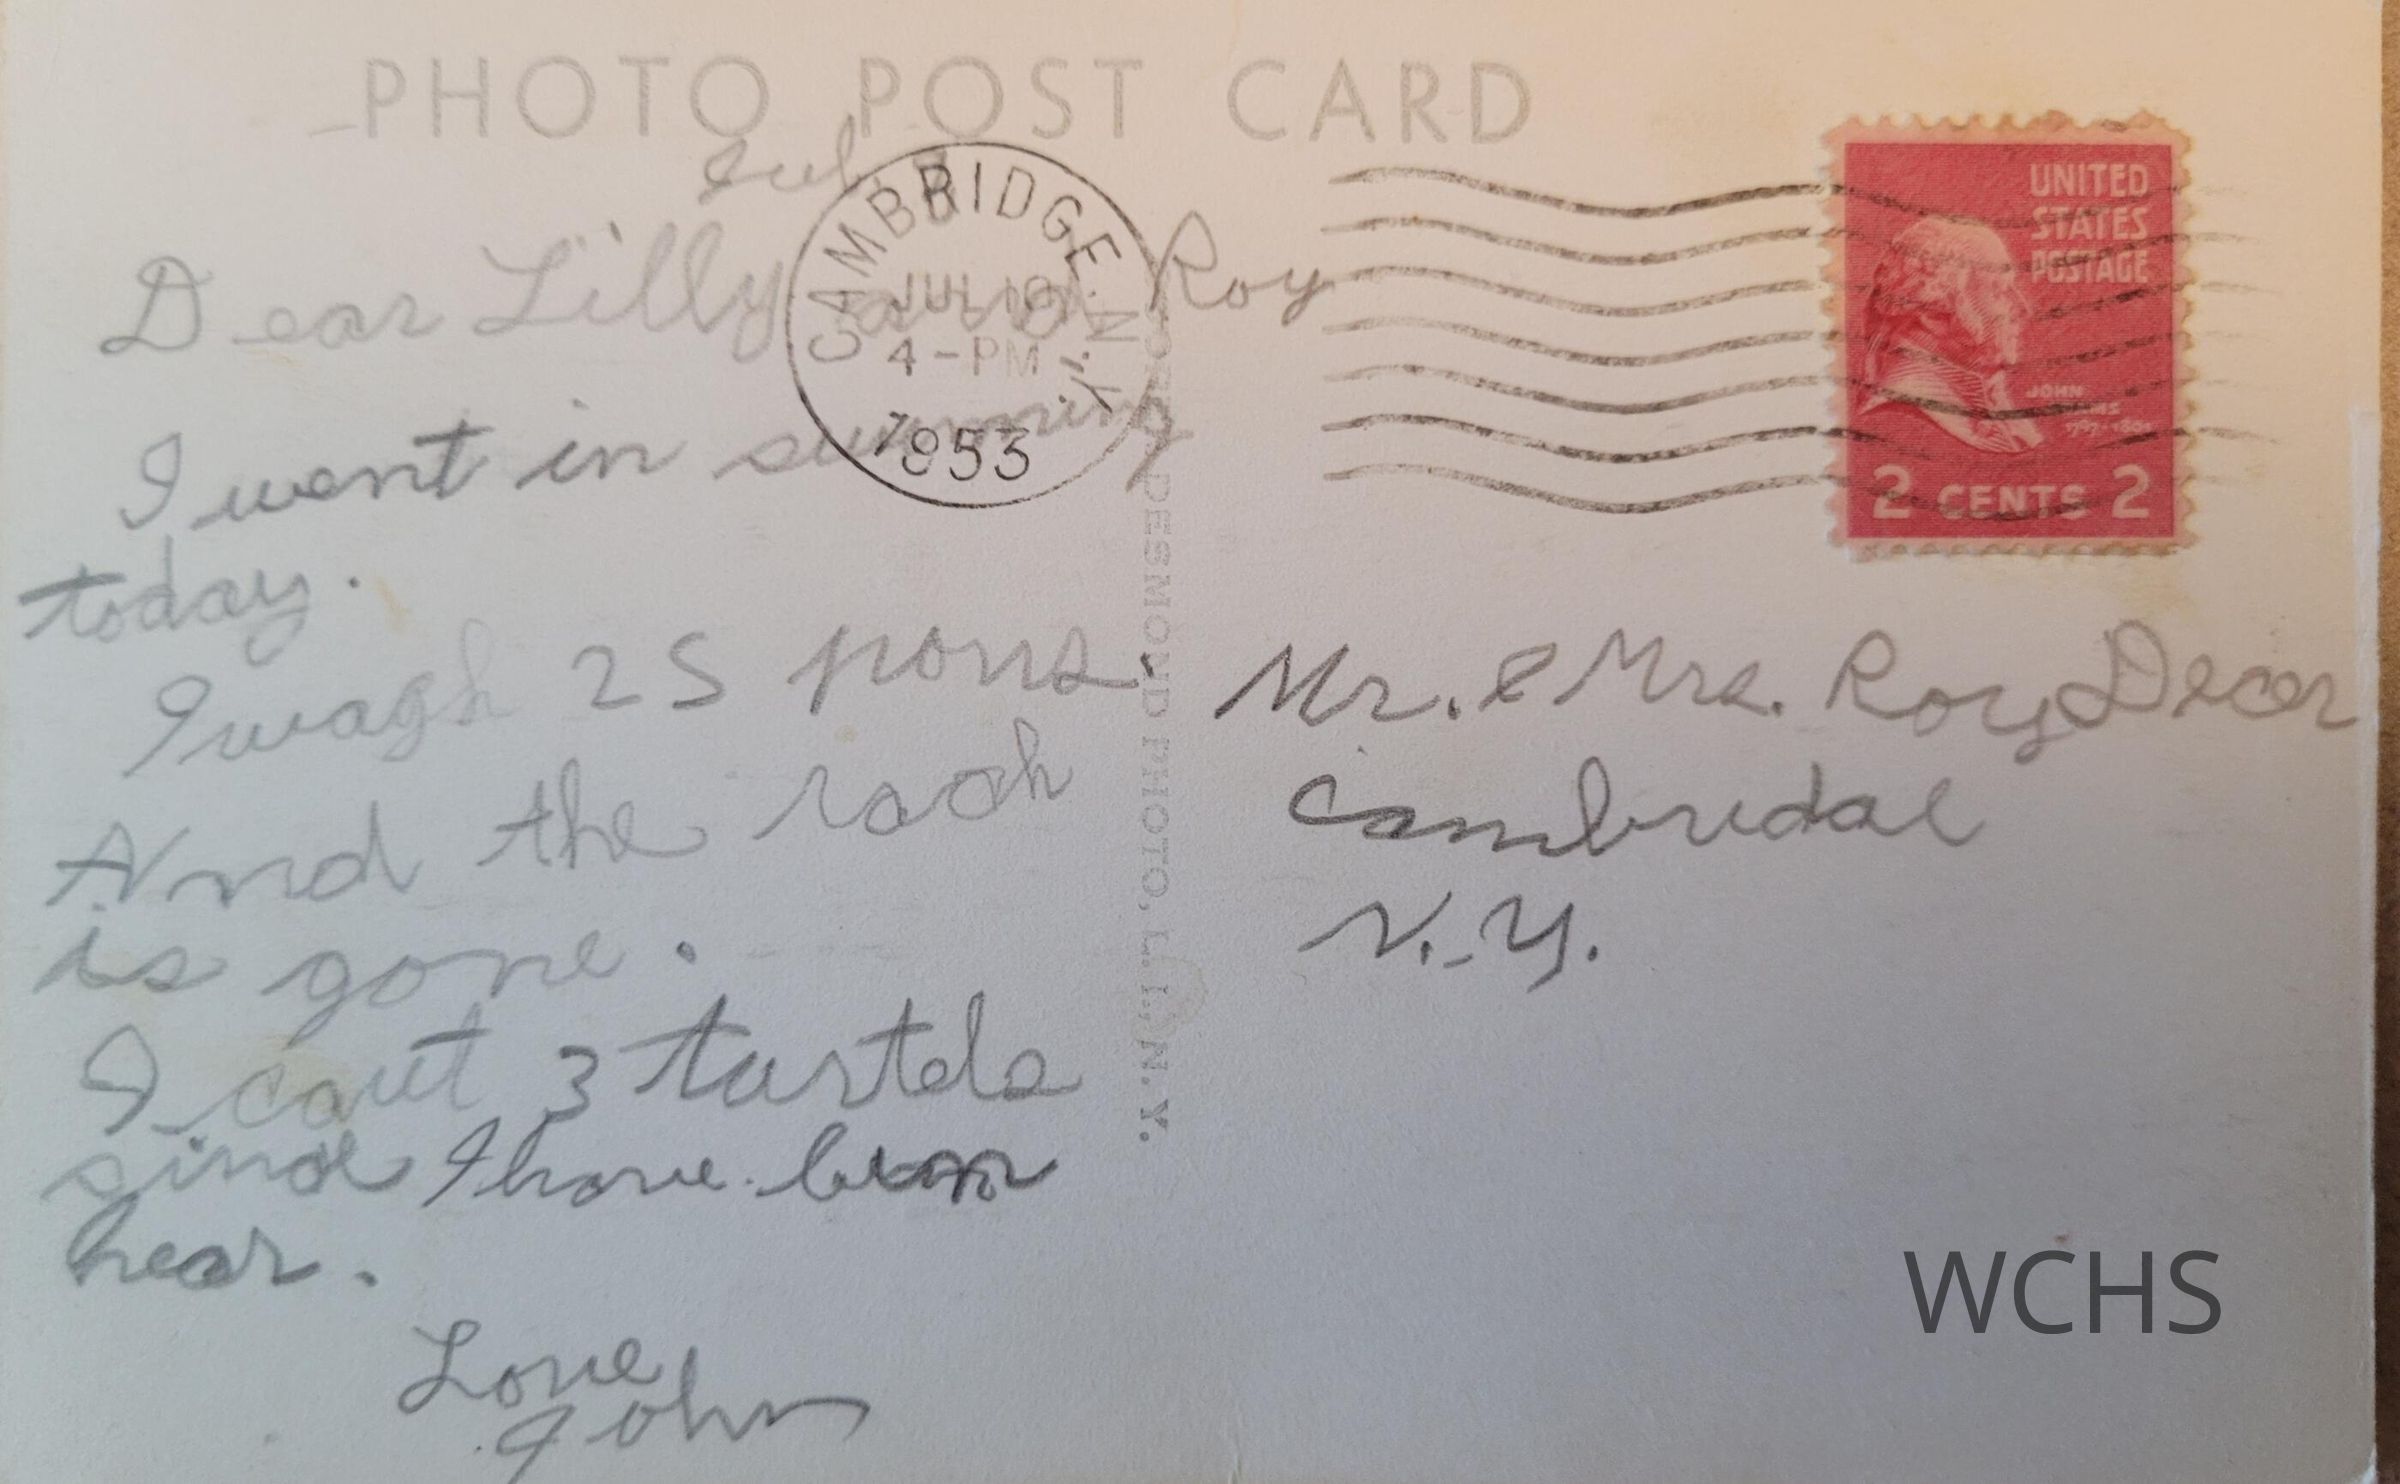 PHOTO POST CARD
Jul. 8
CAMBRIDGE. N.Y.
JUL 10
4-PM
1953
UNITED
STATES
POSTAGE
JOHN
ADAMS
1797-1801
2 CENTS 2
Dear Lilly and Roy
I went in swimming
today.
I wagh 25 pons.
And the rach
is gone.
I caut 3 turtels
sinde I have been
hear.
Love
John
DESMOND PHOTO, L.I., N.Y.
Mr. & Mrs. Roy Dear
Cambridal
N.Y.
WCHS